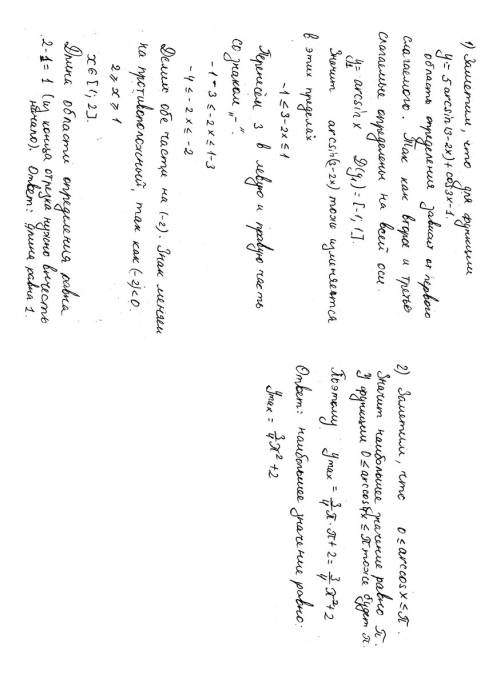 1) Заметим, что для функции
y = 5 arcsin(3-2x) + cos3x - 1.
область определения зависит от первого
слагаемого. Так как второе и третье
слагаемые определены на всей оси.
y₁ = arcsin x D(y₁) = [-1, 1].
Значит arcsin(3-2x) тоже изменяется
в этих пределах
-1 ≤ 3-2x ≤ 1
Перенесём 3 в левую и правую часть
со знаком „-"
-1-3 ≤ -2x ≤ 1-3
-4 ≤ -2x ≤ -2
Делим обе части на (-2). Знак меняем
на противоположный, так как (-2)<0.
2 ≥ x ≥ 1
x ∈ [1; 2].
Длина области определения равна
2-1 = 1 (из конца отрезка нужно вычесть
начало). Ответ: длина равна 1.
2) Заметим, что 0 ≤ arccos x ≤ π.
Значит наибольшее значение равно π.
У функции 0 ≤ arccos4x ≤ π тоже будет π.
Поэтому y max = 3/4 π · π + 2 = 3/4 π² + 2
Ответ: наибольшее значение равно:
y max = 3/4 π² + 2